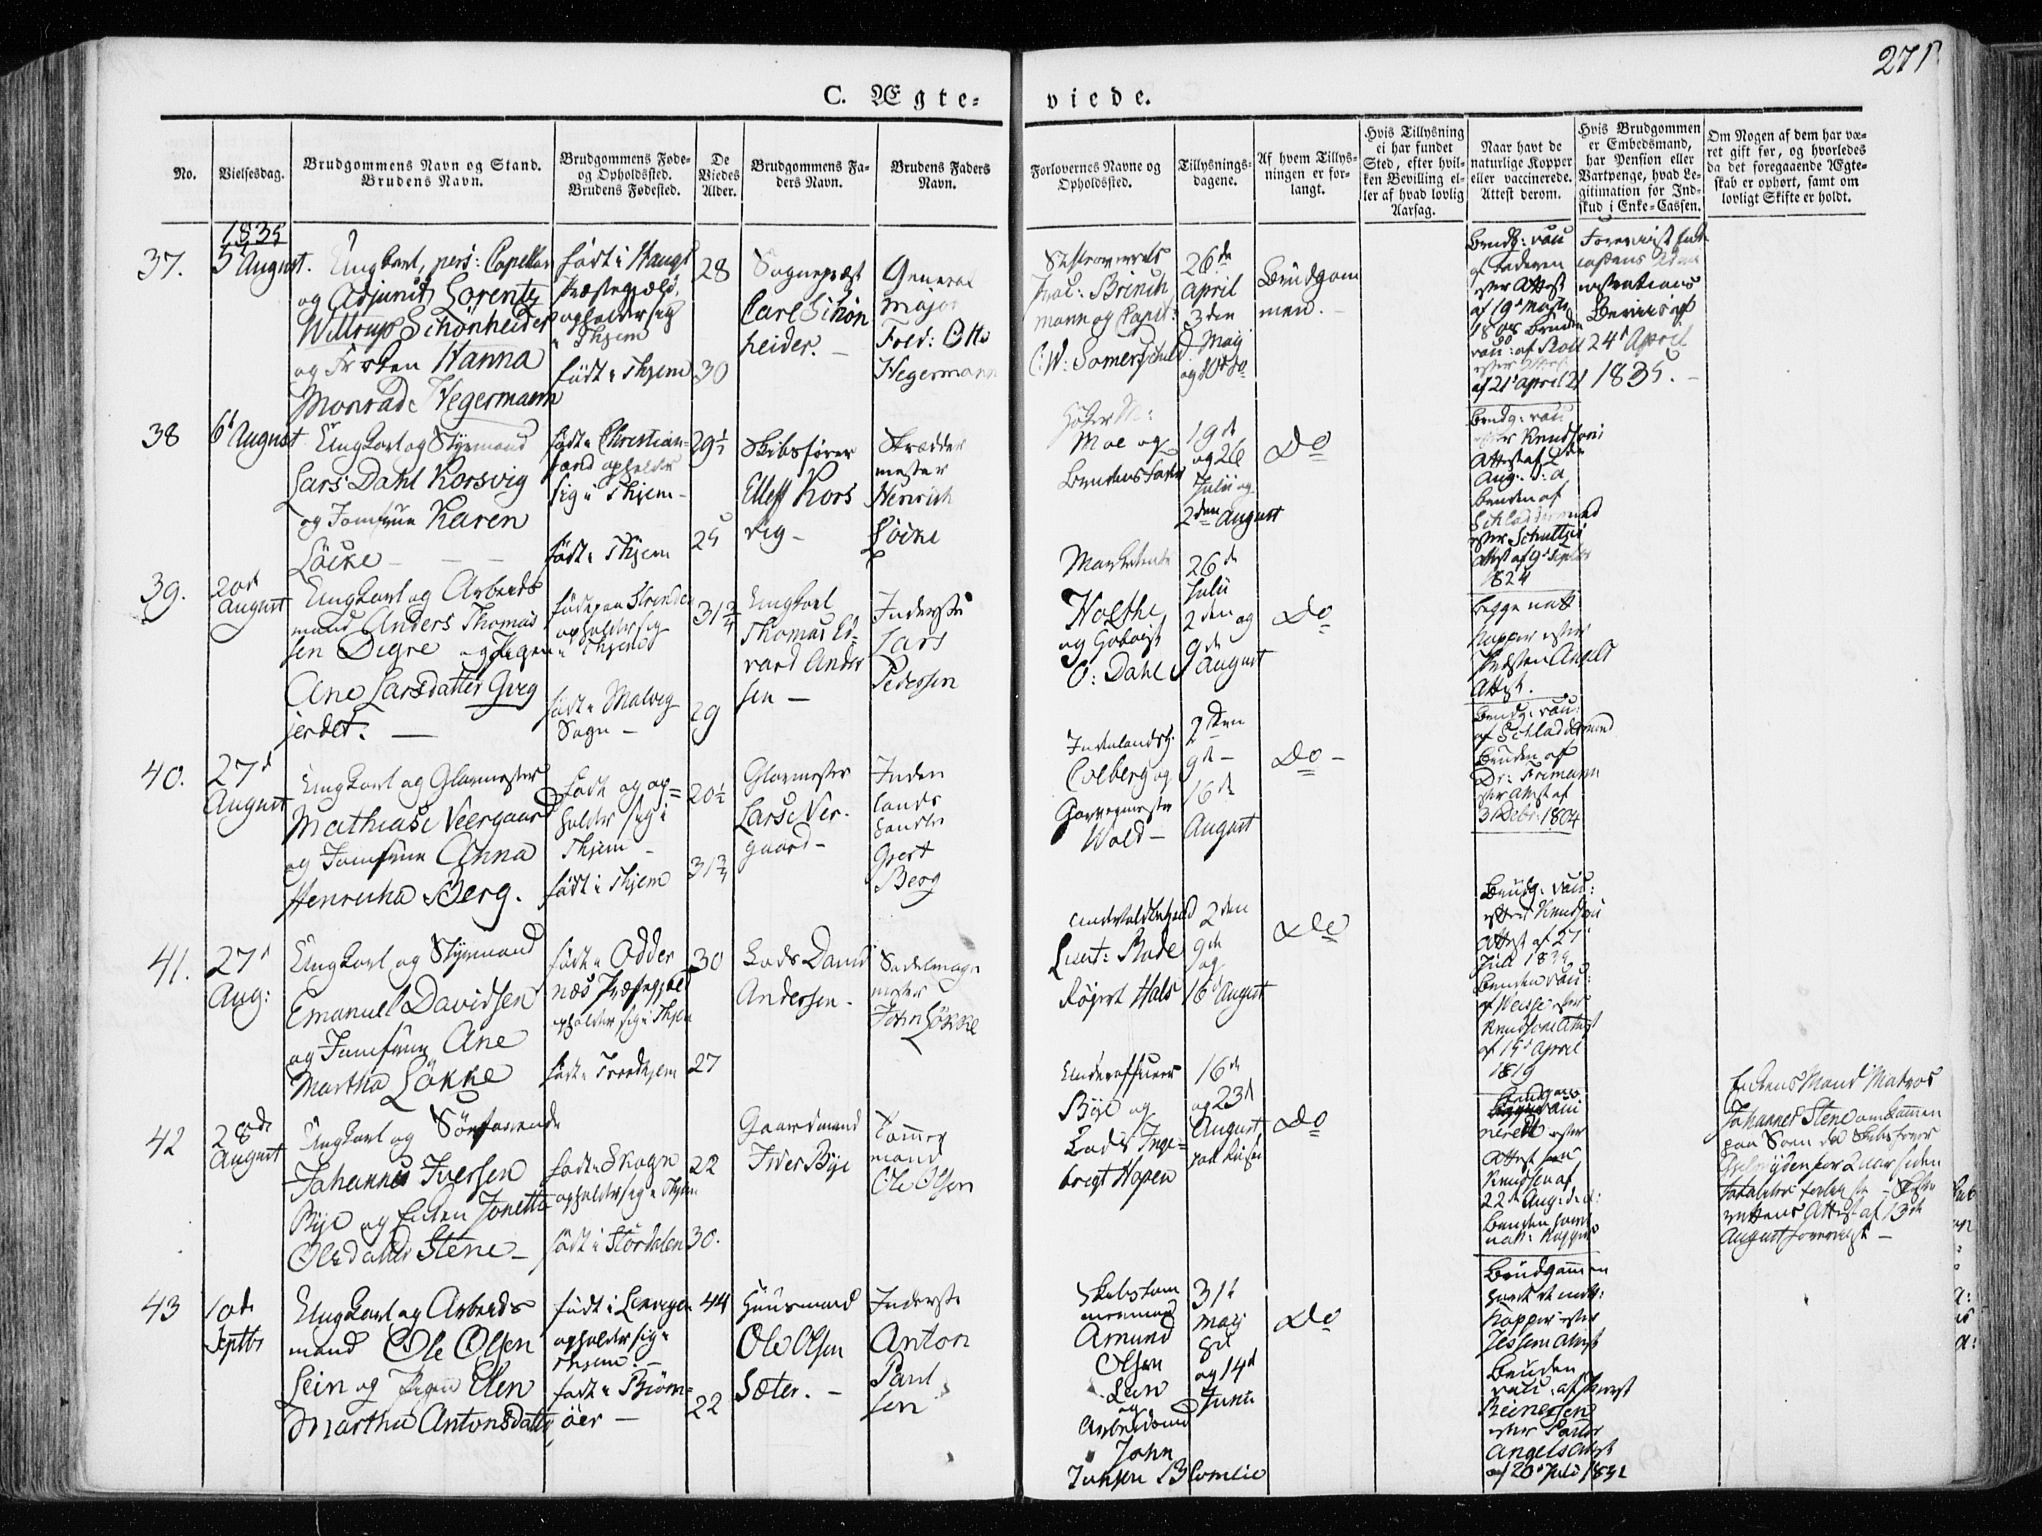 271
C. Ægte-
viede.
No.
Vielsesdag.
Brudgommens Navn og Stand.
Brudens Navn.
Brudgommens Føde-
og Opholdssted.
Brudens Fødested.
De
Viedes
Alder.
Brudgommens Fa-
ders Navn.
Brudens Faders
Navn.
Forlovernes Navne og
Opholdssted.
Tillysnings-
dagene.
Af hvem Tillys-
ningen er for-
langt.
Hvis Tillysning
ei har fundet
Sted, efter hvil-
ken Bevilling el-
ler af hvad lovlig
Aarsag.
Naar havt de
naturlige Kopper
eller vaccinerede.
Attest derom.
Hvis Brudgommen
er Embedsmand,
har Pension eller
Vartpenge, hvad Le-
gitimation for Ind-
skud i Enke-Cassen.
Om Nogen af dem har væ-
ret gift før, og hvorledes
da det foregaaende Ægte-
skab er ophørt, samt om
lovligt Skifte er holdt.
1835
37.
5 August.
Ungkarl, pers: Capellan
og Adjunct Lorentz
Wittrup Schønheider
og Frøken Hanna
Monrad Hegermann
født i Haugs
Præstegjæld,
opholder sig
i Thjem
født i Thjem
28
30
Sognepræst
Carl Schøn
heider. —
General
major
Fred: Otto
Hegermann
Brinch
mann og Capit:
C: W: Somerschield
26de
April
3den
May
og 10de do
Brudgom
men. —
Brudg: vac
af Faderen
efter Attest
af 19de
Bruden
vac: af
af 21 April 21
Forevist Enke
cassens Admi
nistrations
Beviis af
24d April
1835. —
38
6t August
Ungkarl og Styrmand
Lars Dahl Korsvig
og Jomfrue Karen
Löcke — —
født i Christian-
sand opholder
sig i Thjem —
født i Thjem
29½
25
Skibsfører
Elleff Kors
vig —
Skrædder
mester
Henrich
Löcke
Moe og
Brudens Fader
19de
og 26
Julii og
2den August
Do
Brudg: vac
efter Knudsons
Attest af 2den
Aug: d: a
Bruden af
efter Schultzes
Attest af 9d Septbr
1824
39.
20de
August
Ungkarl og Arbeids
mand Anders Thomas
sen Digre og Pigen
Ane Larsdatter Gveg
jerdet. —
født paa Strinden
opholder sig
i Thjem
født i Malvig
Sogn —
31¾
29
Ungkarl
Thomas Ed-
vard Ander
sen —
Inderste
Lars
Pedersen
Holthe
og
O: Dahl
26de
Julii
2den og
9de
August
Do
Begge nat:
Kopper efter
Præsten Angels
Attest.
40.
27d
August
Ungkarl og Glarmester
Mathias Neergaard
og Jomfrue Anna
Henricha Berg.
Født og op=
holder sig i
Thjem —
født i Thjem
20½
31¾
Glarmester
Lars Neer-
gaard —
Inden
lands
handler
Gjert
Berg
Indenlandsh:
Colberg og
Garvermester
Wold —
2den
9de —
16de
August
Do —
Brudg: vac:
Bruden af
Dr: Frimann
efter Attest af
31 Debr: 1804
41.
27d
Aug:
Ungkarl og Styrmand
Emanuel Davidsen
og Jomfrue Ane
Martha Løkke
født i Odder
næs Præstegjeld
opholder sig i Thjem
født i Trondhjem
30
27
Lods David
Andersen —
Sadelmager
mester
John Løkke
Lieut: Bode
Hals
2den
9de
og
16d August
Do
Brudg: vac:
efter Knudsons
Attest af 27
Juli 1835
Bruden vac:
af Weise efter
Knudsons Attest
af 15d April
1819
42
28de
August
Ungkarl og Søefarende
Johannes Iversen
Bye og Enken Jonetta
Olsdatter Stene —
født i Skogn
opholder sig i Thjem
født i Stordalen
22
30.
Gaardmand
Iver Bye
Tømmer
mand
Ole Olsen
Underofficeer
Bye og
Lods Inge-
brigt Hopen
16de
og 23d
August
Do
Brudgom
vacci
neret efter
Attest fra
Knudsen af
22de Aug: d:a:
Bruden havt
nat: Kopper
Enkens Mand Matros
Johannes Stene omkommen
paa Søen da
for 2 Aar siden
totaliter forliste — Skifte
rettens Attest af 13de
August forevist —
43
10de
Septbr
Ungkarl og Arbeids
mand Ole Olsen
Sein og Pigen Elen
Martha Antonsdatter
født i Levanger
opholder sig i
Thjem. —
født i Biørn=
öer —
44
22
Huusmand
Ole Olsen
Sæter. —
Inderste
Anton
Paul
sen
Skibstøm
mermand
Amund
Olsen
Lian
og
Arbeidsmd
John
Jensen Blomlie
31t
May
8d
og 14d
Juni
Do
Brudgommen
havt de natl:
Kopper efter
Jessens Attest
Bruden
vacc: af
Reinersen
efter Pastor
Angels Attest
af 20d Juli 1832